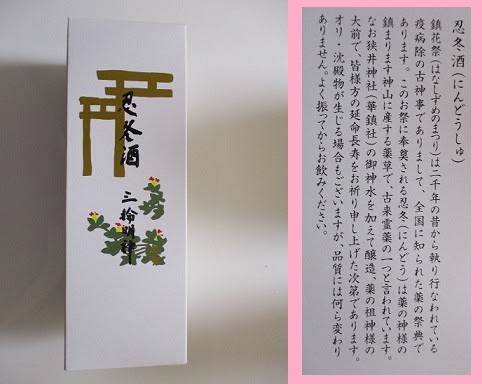 忍冬酒
三輪明神
忍冬酒(にんどうしゅ)
鎮花祭(はなしずめのまつり)は二千年の昔から執り行なわれている
疫病除の古神事でありまして、全国に知られた薬の祭典で
あります。このお祭に奉奠される忍冬(にんどう)は薬の神様の
鎮まります神山に産する薬草で、古来霊薬の一つと言われています。
なお狭井神社(華鎮社)の御神水を加えて醸造、薬の祖神様の
大前で、皆様方の延命長寿をお祈り申し上げた次第であります。
オリ・沈殿物が生じる場合もございますが、品質には何ら変わり
ありません。よく振ってからお飲みください。